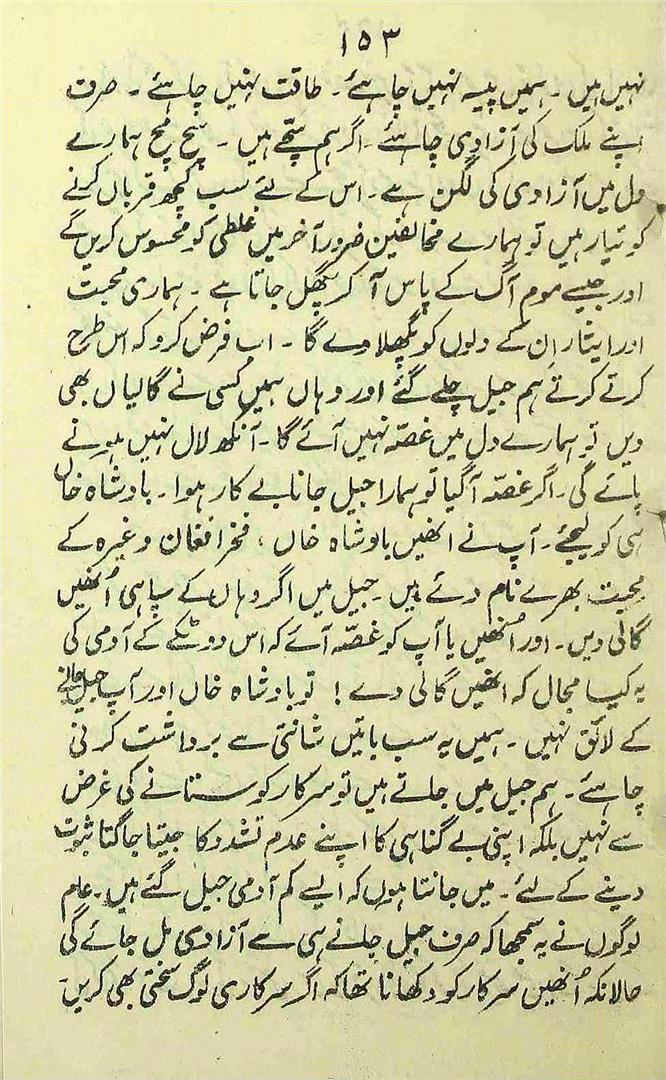 ۱۵۳
نہیں ہیں ۔ ہمیں پیسہ نہیں چاہئے ۔ طاقت نہیں چاہئے ۔ صرف
اپنے ملک کی آزادی چاہئے ۔ اگر ہم سچے ہیں ۔ سچ مچ ہمارے
دل میں آزادی کی لگن ہے ۔ اس کے لئے سب کچھ قربان کرنے
کو تیار ہیں تو ہمارے مخالفین ضرور آخر میں غلطی کو محسوس کریں گے
اور جیسے موم آگ کے پاس آ کر پگھل جاتا ہے ۔ ہماری محبت
اور ایثار ان کے دلوں کو پگھلا دے گا ۔ اب فرض کرو کہ اس طرح
کرتے کرتے ہم جیل چلے گئے اور وہاں ہمیں کسی نے گالیاں بھی
دیں تو ہمارے دل میں غصہ نہیں آئے گا ۔ آنکھ لال نہیں ہونے
پائے گی ۔ اگر غصہ آگیا تو ہمارا جیل جانا بے کار ہوا ۔ بادشاہ خاں
ہی کو لیجئے ۔ آپ نے انھیں بادشاہ خاں ، فخر افغان وغیرہ کے
محبت بھرے نام دئے ہیں ۔ جیل میں اگر وہاں کے سپاہی اُنھیں
گالی دیں ۔ اور اُنھیں یا آپ کو غصہ آئے کہ اس دو ٹکے کے آدمی کی
یہ کیا مجال کہ انھیں گالی دے ! تو بادشاہ خاں اور آپ جیل جانے
کے لائق نہیں ۔ ہمیں یہ سب باتیں شانتی سے برداشت کرنی
چاہئے ۔ ہم جیل میں جاتے ہیں تو سرکار کو ستانے کی غرض
سے نہیں بلکہ اپنی بے گناہی کا اپنے عدم تشدد کا جیتا جاگتا ثبوت
دینے کے لئے ۔ میں جانتا ہوں کہ ایسے کم آدمی جیل گئے ہیں ۔ عام
لوگوں نے یہ سمجھا کہ صرف جیل جانے ہی سے آزادی مل جائے گی
حالانکہ اُنھیں سرکار کو دکھانا تھا کہ اگر سرکاری لوگ سختی بھی کریں ۔